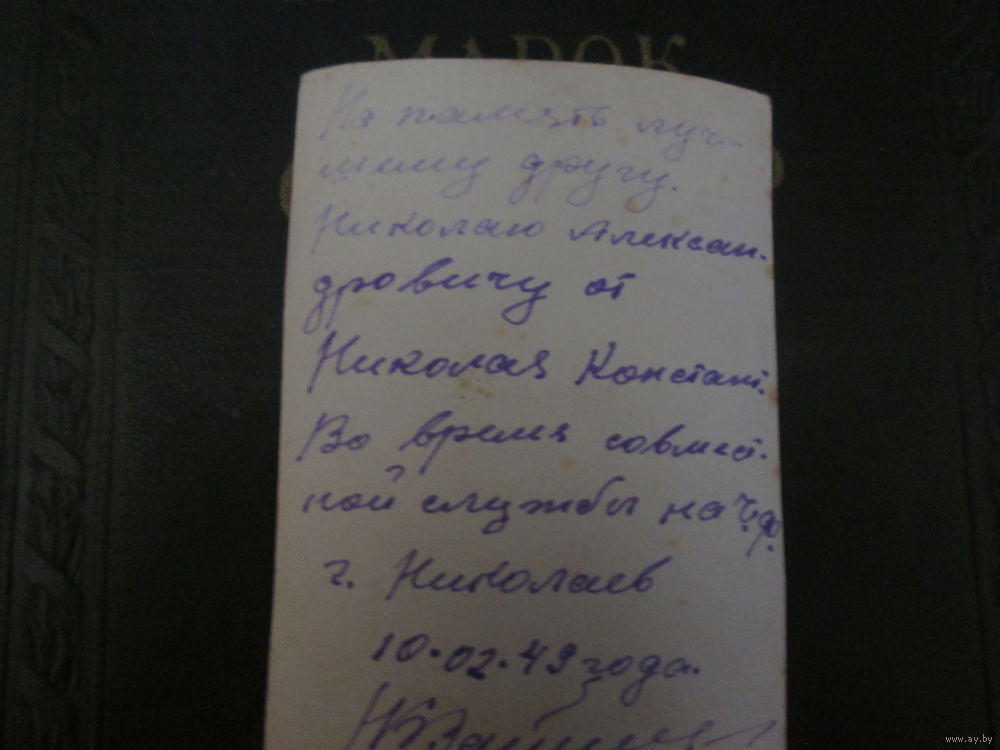 МАРОК
На память луч-
шему другу.
Николаю Алексан-
дровичу от
Николая Констант.
Во время совмест-
ной службы на Ч.Ф.
г. Николаев
10.02.49 года.
www.ay.by